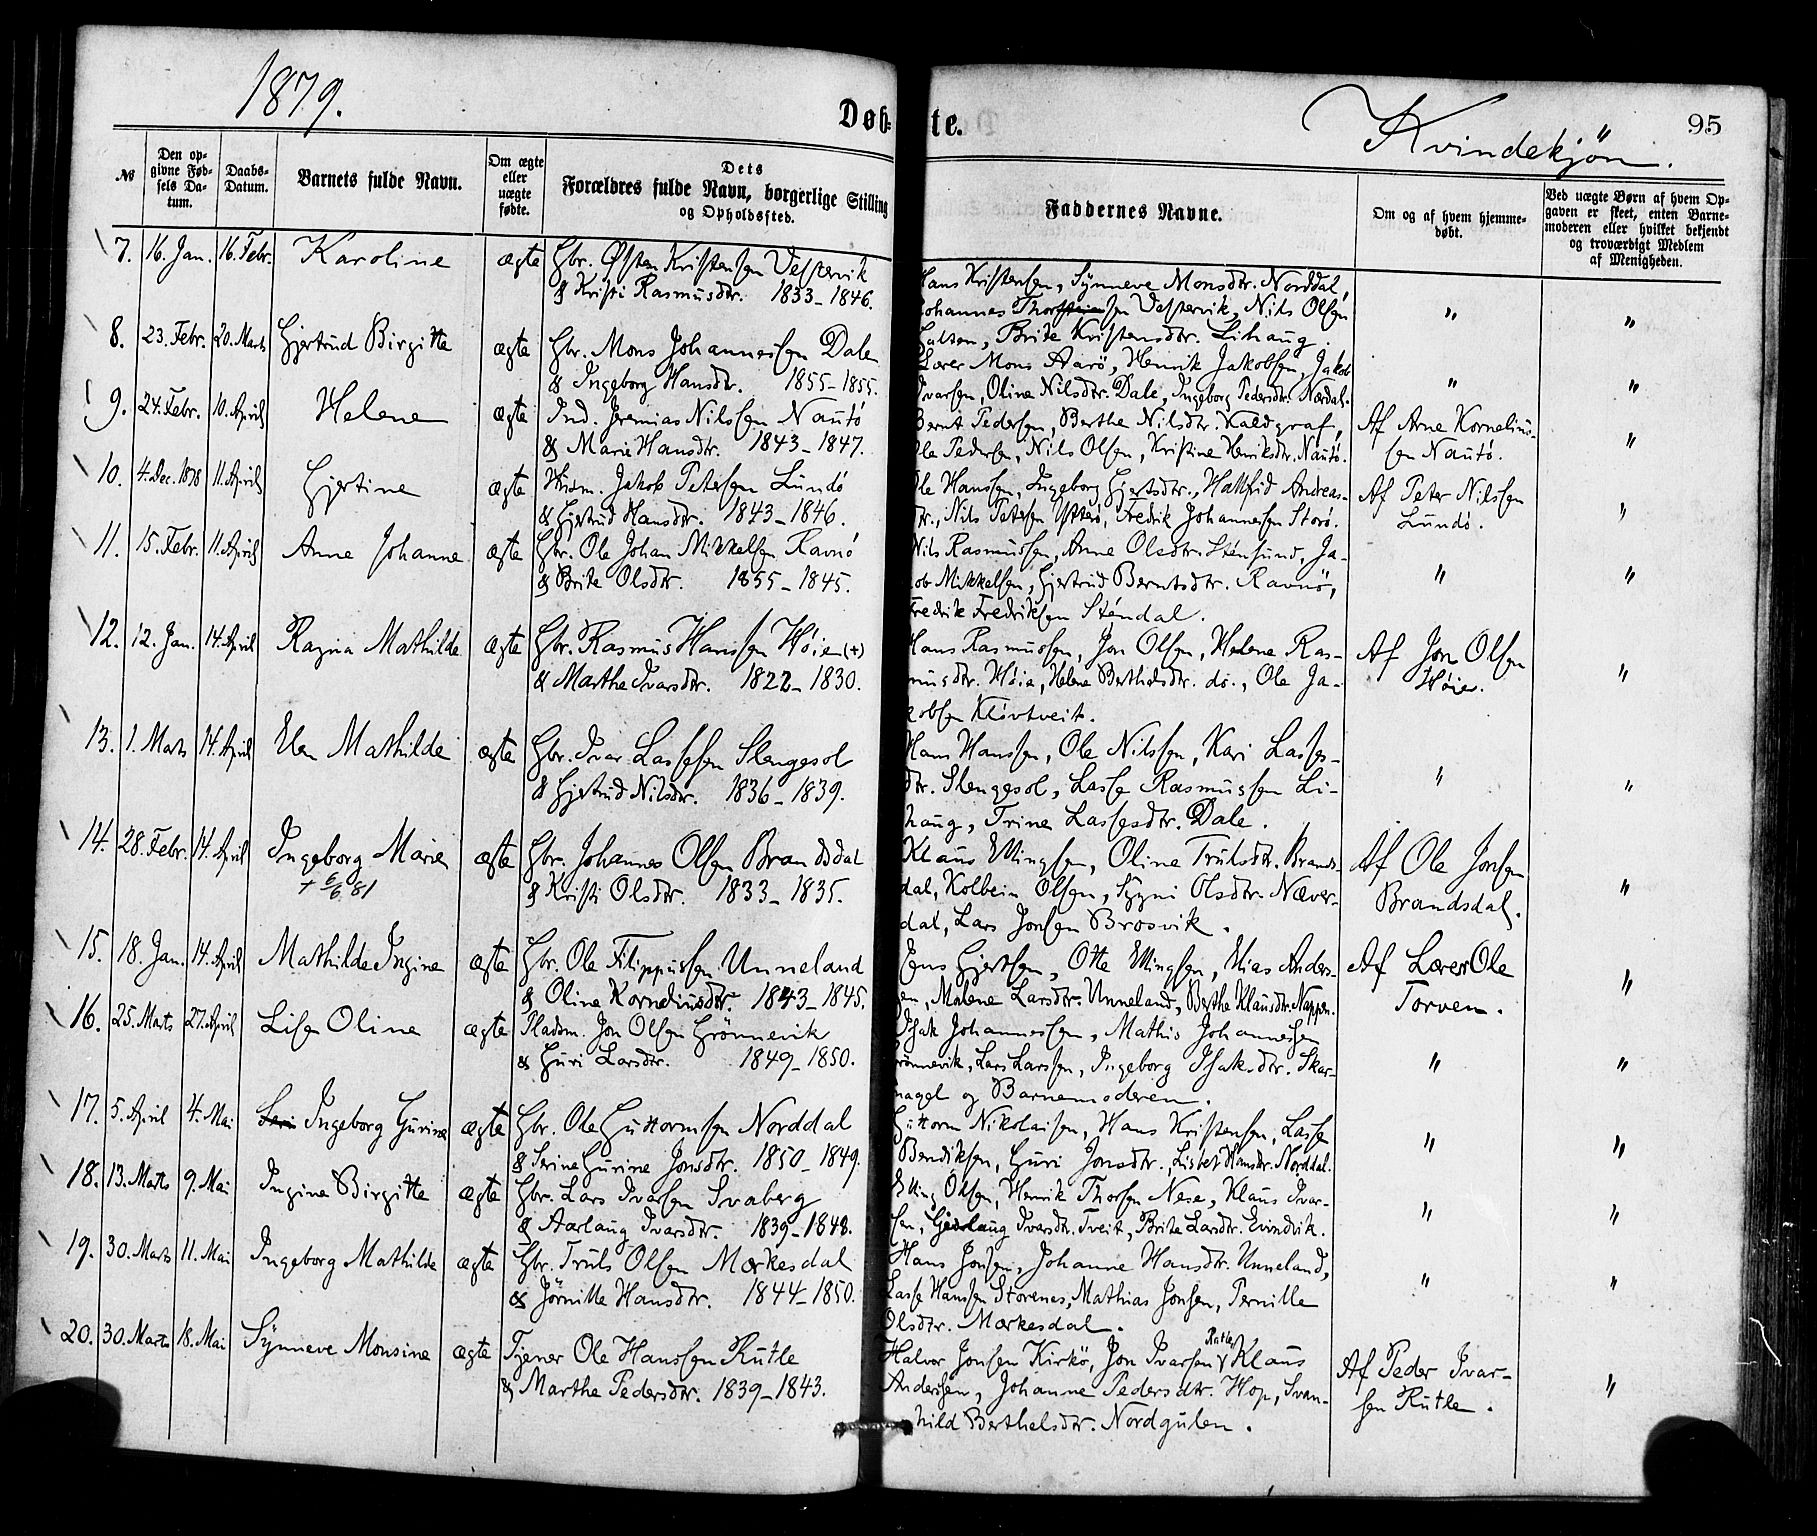 1879.
Døb-
te.
Kvindekjøn.
95
№
Den op-
givne Fød-
sels Da-
tum.
Daabs-
Datum.
Barnets fulde Navn.
Om ægte
eller
uægte
fødte.
Dets
Forældres fulde Navn, borgerlige Stilling
og Opholdssted.
Faddernes Navne.
Om og af hvem hjemme-
døbt.
Ved uægte Børn af hvem Op-
gaven er skeet, enten Barne-
moderen eller hvilket bekjendt
og troværdigt Medlem
af Menigheden.
7. 16. Jan. 16. Febr. Karoline ægte Gbr. Østen Kristensen Vestervik
& Kristi Rasmusdtr. 1833-1846.
Hans Kristensen, Synneve Monsdtr. Norddal,
Johannes Thorsteinsen Vestervik, Nils Olsen
Brite Kristensdtr. Lihaug. " "
8. 23. Febr. 20. Marts Gjertrud Birgitte ægte Gbr. Mons Johannessen Dale
& Ingeborg Hansdtr. 1855-1855.
Lærer Mons Aarø, Henrik Jakobsen, Jakob
Ivarsen, Oline Nilsdtr. Dale, Ingeborg Pedersdtr. Nordal. " "
9. 24. Febr. 10. April Helene ægte Ind. Jeremias Nilssen Nautø
& Marie Hansdtr. 1843-1847.
Bernt Pedersen, Berthe Nilsdtr. Kaldgraf,
Ole Pedersen, Nils Olsen, Kristine Henriksdtr. Nautø.
Af Arne Kornelius-
sen Nautø. "
10. 4. Dec. 1878 11. April Gjertine ægte Husm. Jakob Petersen Lundø
& Gjertrud Hansdtr. 1843-1846.
Ole Hanssen, Ingeborg Gjertsdtr., Halfrid Andreas-
dtr., Nils Petersen Ytterø, Fredrik Johannessen Storø.
Af Peter Nilssen
Lundø. "
11. 15. Febr. 11. April Anne Johanne ægte Gbr. Ole Johan Mikkelsen Ravnø
& Brite Olsdtr. 1855-1845.
Nils Rasmussen, Anne Olsdtr. Stensund, Ja-
kob Mikkelsen, Gjertrud Berntsdtr. Ravnø,
Fredrik Fredriksen Stendal. " "
12. 12. Jan. 14. April Ragna Mathilde ægte Gbr. Rasmus Hanssen Høie (+)
& Marthe Ivarsdtr. 1822-1830.
Hans Rasmussen, Jon Olsen, Helene Ras-
musdtr. Høie, Helene Berthelsdtr. do., Ole Ja-
kobsen Kløvtveit.
Af Jon Olsen
Høie. "
13. 1. Marts 14. April Elen Mathilde ægte Gbr. Ivar Lassesen Slengesol
& Gjertrud Nilsdtr. 1836-1839.
Hans Hanssen, Ole Nilssen, Kari Lasses-
dtr. Slengesol, Lasse Rasmussen Li-
haug, Trine Lassesdtr. Dale. " "
14. 28. Febr. 14. April Ingeborg Marie ægte Gbr. Johannes Olsen Brandsdal
+ 6/6 81 & Kristi Olsdtr. 1833-1835.
Klaus Ellingsen, Oline Trulsdtr. Brands-
dal, Kolbein Olsen, Sygni Olsdtr. Næver-
dal, Lars Jonsen Brosvik.
Af Ole Jonsen
Brandsdal. "
15. 18. Jan. 14. April Mathilde Ingine ægte Gbr. Ole Filippussen Unneland
& Oline Korneliusdtr. 1843-1845.
Jens Gjertsen, Otte Ellingsen, Elias Anders-
sen, Malene Larsdtr. Unneland, Berthe Klausdtr. Nappen.
Af Lærer Ole
Torven. "
16. 25. Marts 27. April Lise Oline ægte Pladsm. Jon Olsen Grønnevik
& Guri Larsdtr. 1849-1850.
Isak Johannessen, Mathis Johannessen
Grønnevik, Lars Larssen, Ingeborg Isaksdtr. Skar-
nagel og Barnemoderen. " "
17. 5. April 4. Mai Ingeborg Gurine ægte Gbr. Ole Guttormsen Norddal
& Serine Gurine Jonsdtr. 1850-1849.
Guttorm Nikolaisen, Hans Kristensen, Lasse
Bendiksen, Guri Jonsdtr., Lisbet Hansdtr. Norddal. " "
18. 13. Marts 9. Mai Ingine Birgitte ægte Gbr. Lars Ivarsen Svaberg
& Aarlaug Ivarsdtr. 1839-1848.
Elling Olsen, Henrik Thorsen Nese, Klaus Ivar-
sen, Ivarsdtr. Tveit, Brite Larsdtr. Evindvik. " "
19. 30. Marts 11. Mai Ingeborg Mathilde ægte Gbr. Truls Olsen Mærkesdal
& Jørnille Hansdtr. 1844-1850.
Hans Jonsen, Johanne Hansdtr. Unneland,
Lasse Hanssen Storenes, Mathias Jonsen, Pernille
Olsdtr. Mærkesdal. " "
20. 30. Marts 18. Mai Synneve Monsine ægte Tjener Ole Hanssen Rutle
& Marthe Pedersdtr. 1839-1843.
Halvor Jonsen Kirkø, Jon Ivarsen Rutle, Klaus
Andersen, Johanne Pedersdtr. Hop, Svan-
hild Berthelsdtr. Nordgulen.
Af Peder Ivar-
sen Rutle. "